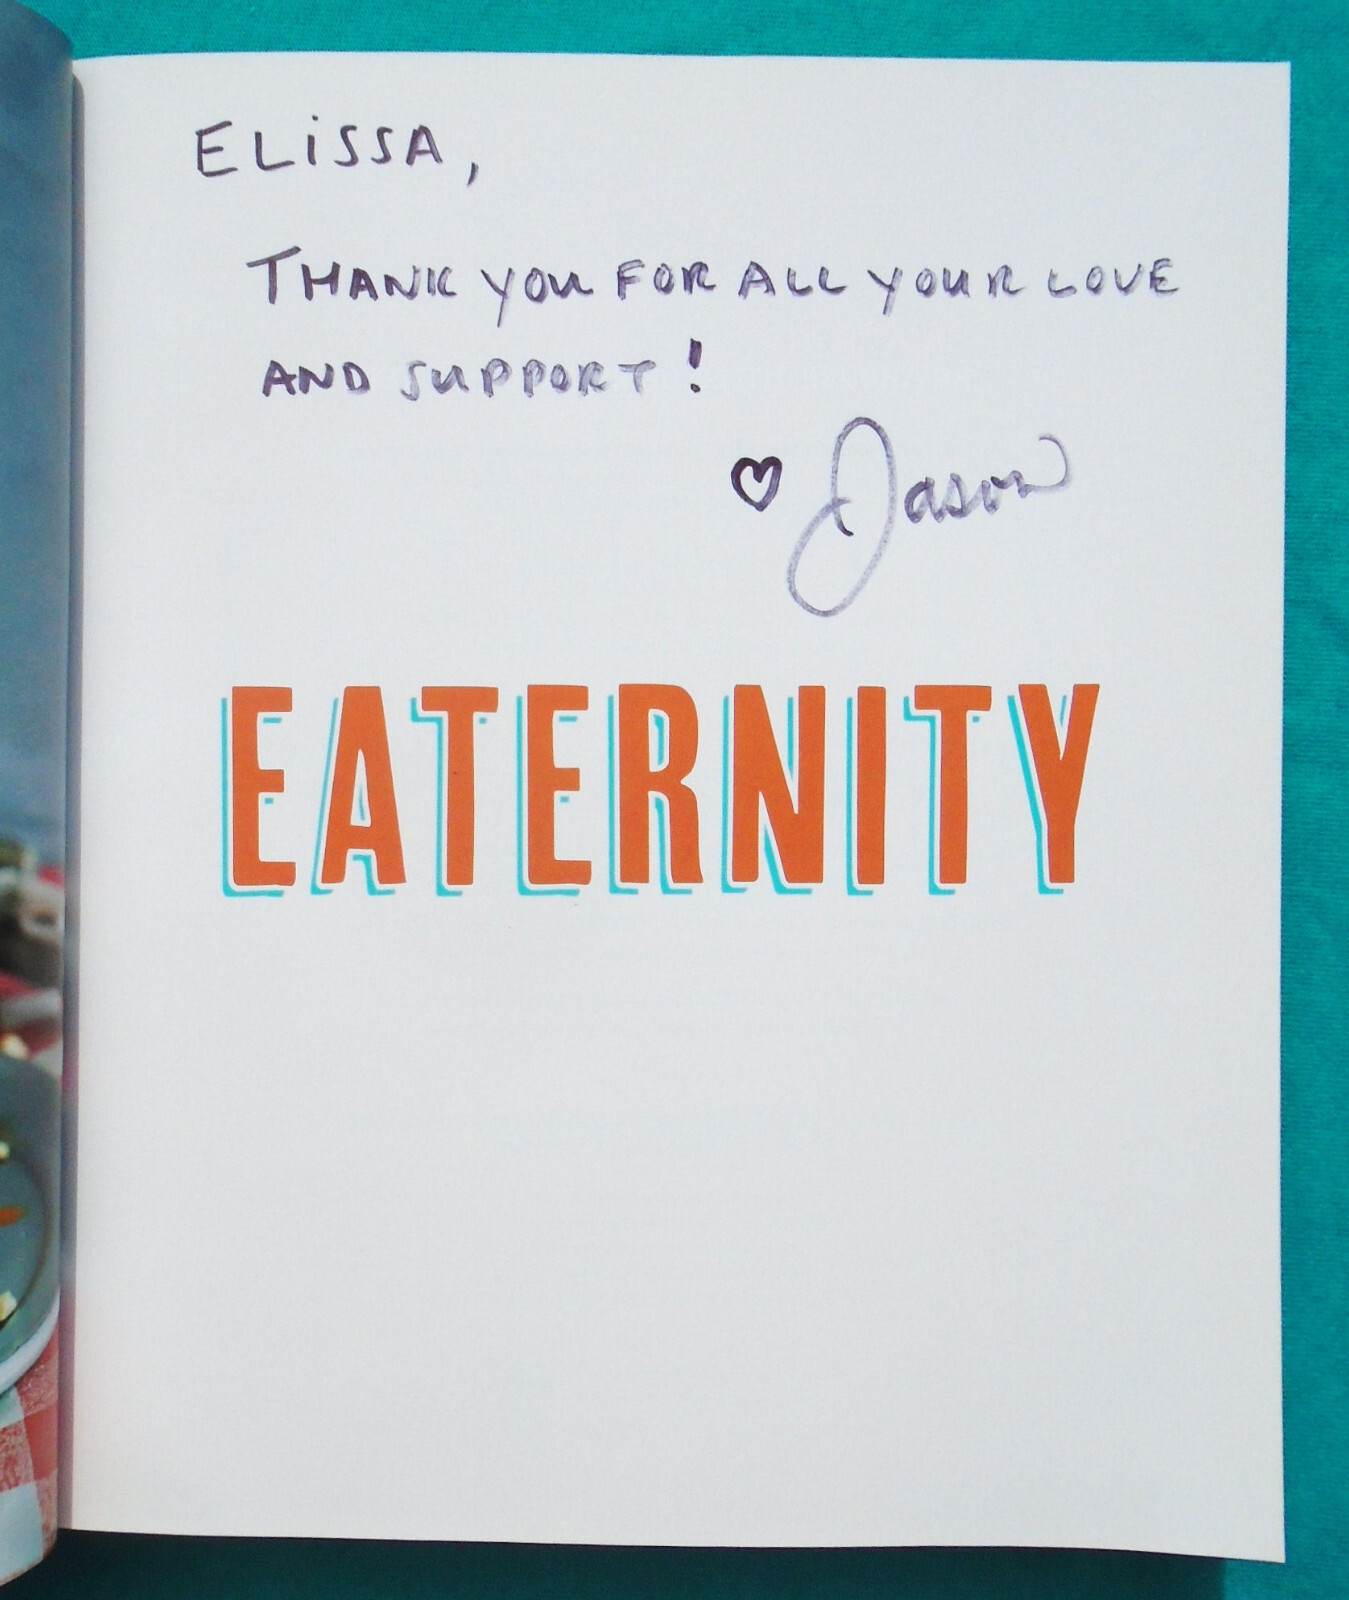 ELiSSA,
THANK YOU FOR ALL YOUR LOVE
AND SUPPORT!
♥ Jason
EATERNITY